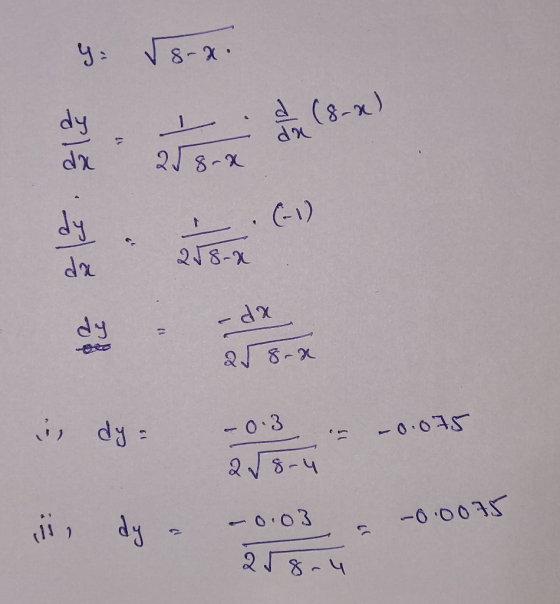 y = √8-x.
dy/dx = 1/2√8-x · d/dx (8-x)
dy/dx = 1/2√8-x · (-1)
dy = -dx/2√8-x
i, dy = -0.3/2√8-4 = -0.075
ii, dy = -0.03/2√8-4 = -0.0075